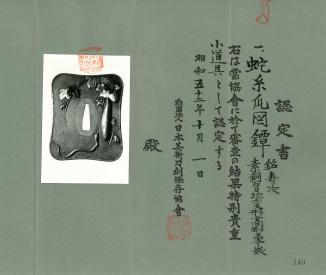 認定書
一、蛇糸瓜図鐔
銘 寿次
右は當協會に於て審査の結果特別貴重
小道具として認定する
昭和五十三年十月一日
財團法人日本美術刀剣保存協會
殿
140